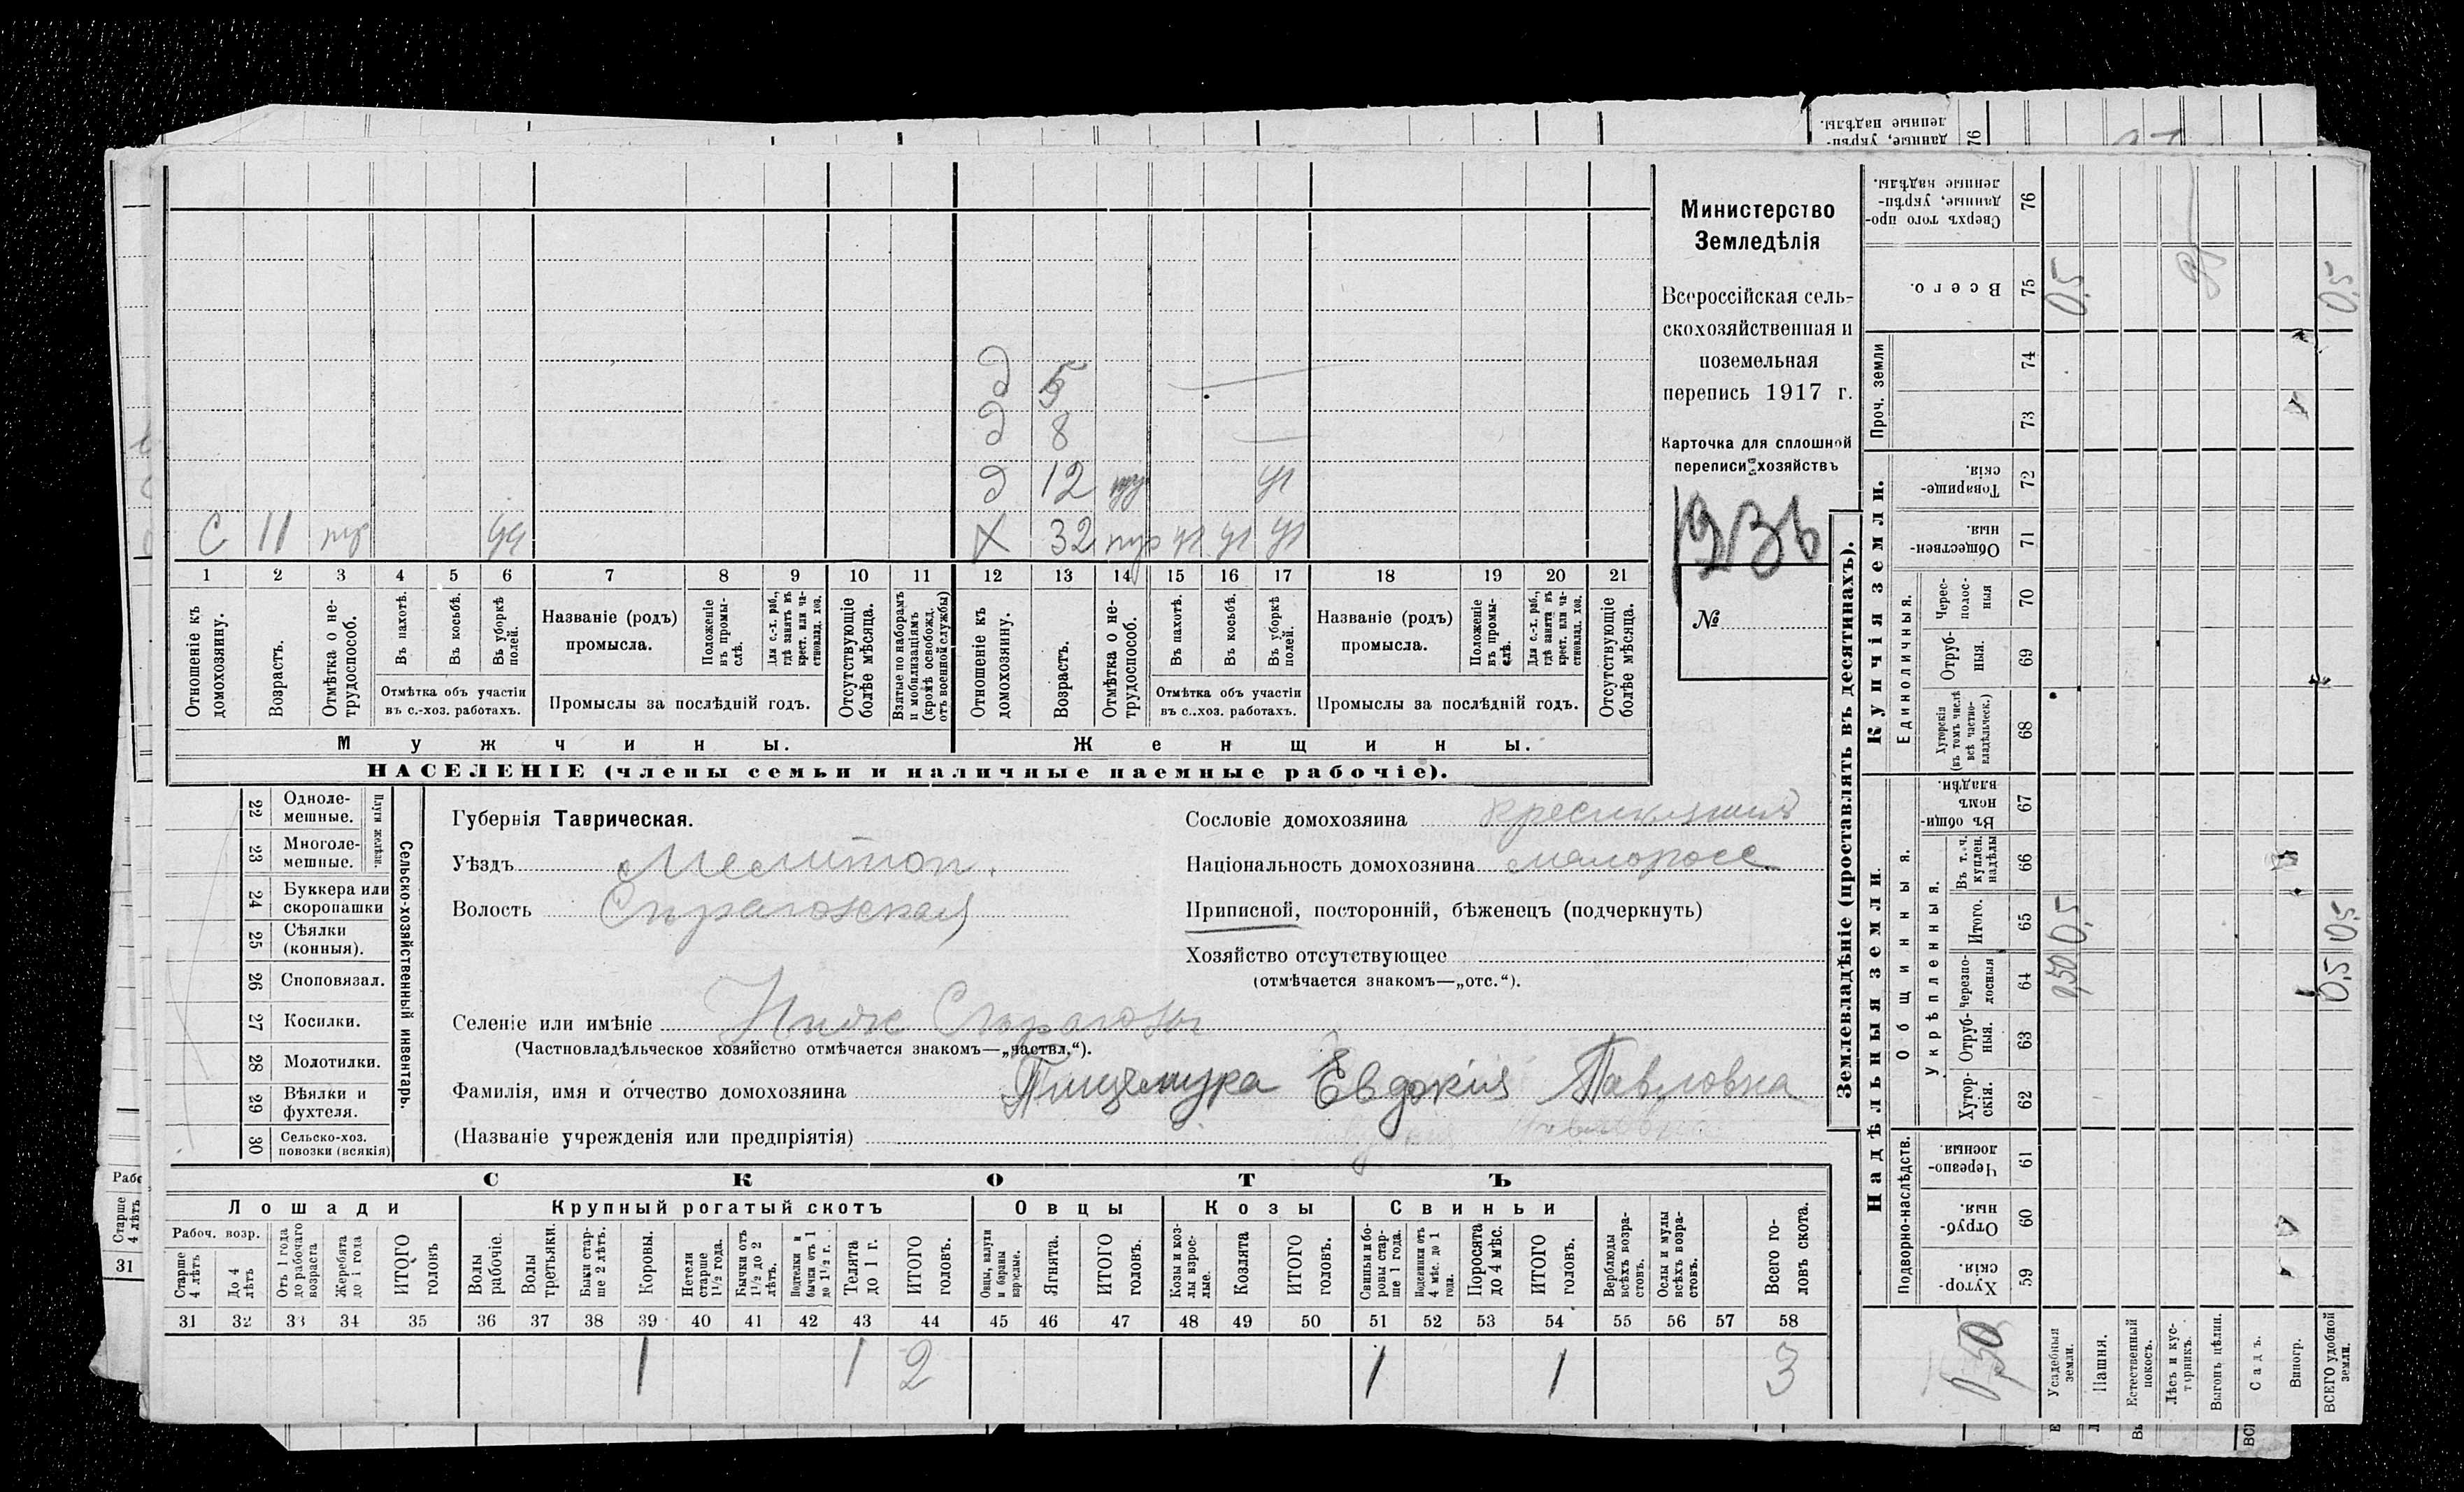 Министерство
Земледѣлія
Всероссійская сель-
скохозяйственная и
поземельная
перепись 1917 г.
Карточка для сплошной
переписи хозяйствъ
№
д 5
д 8
д 12 уч
С 11 уч Х 32 уч уч уч
1 2 3 4 5 6 7 8 9 10 11 12 13 14 15 16 17 18 19 20 21
Отношеніе къ домохозяину.
Возрастъ.
Отмѣтка о не-трудоспособ.
Въ пахотѣ.
Въ косьбѣ.
Въ уборкѣ полей.
Отмѣтка объ участіи
въ с.-хоз. работахъ.
Названіе (родъ)
промысла.
Положеніе въ промы-слѣ.
Для с.-х. раб., гдѣ занятъ въ крест. или ча-стновлад. хоз.
Промыслы за послѣдній годъ.
Отсутствующіе болѣе мѣсяца.
Взятые по наборамъ и мобилизаціямъ (кромѣ освобожд. отъ военной службы)
Отношеніе къ домохозяину.
Возрастъ.
Отмѣтка о не-трудоспособ.
Въ пахотѣ.
Въ косьбѣ.
Въ уборкѣ полей.
Отмѣтка объ участіи
въ с.-хоз. работахъ.
Названіе (родъ)
промысла.
Положеніе въ промы-слѣ.
Для с.-х. раб., гдѣ занята въ крест. или ча-стновлад. хоз.
Промыслы за послѣдній годъ.
Отсутствующіе болѣе мѣсяца.
Мужчины. Женщины.
НАСЕЛЕНІЕ (члены семьи и наличные наемные рабочіе).
Сельско-хозяйственный инвентарь.
Плуги желѣзн.
22 Одноле-мешные.
23 Многоле-мешные.
24 Буккера или скоропашки
25 Сѣялки (конныя).
26 Сноповязал.
27 Косилки.
28 Молотилки.
29 Вѣялки и фухтеля.
30 Сельско-хоз. повозки (всякія)
Губернія Таврическая.
Уѣздъ Мелитоп.
Волость Сѣрагозская
Селеніе или имѣніе Нижн Сѣрагозы
(Частновладѣльческое хозяйство отмѣчается знакомъ—„частвл.“).
Фамилія, имя и отчество домохозяина Евдокія Павловна
(Названіе учрежденія или предпріятія)
Сословіе домохозяина крестьянинъ
Національность домохозяина малоросс
Приписной, посторонній, бѣженецъ (подчеркнуть)
Хозяйство отсутствующее
(отмѣчается знакомъ—„отс.“).
СКОТЪ
Лошади Крупный рогатый скотъ Овцы Козы Свиньи
Рабоч. возр.
Старше 4 лѣтъ
До 4 лѣтъ
Отъ 1 года до рабочаго возраста
Жеребята до 1 года
ИТОГО головъ
Волы рабочіе.
Волы третьяки.
Быки стар-ше 2 лѣтъ.
Коровы.
Нетели старше 1½ года.
Бычки отъ 1½ до 2 лѣтъ.
Подтелки и бычки отъ 1 до 1½ г.
Телята до 1 г.
ИТОГО головъ.
Овцы, валухи и бараны взрослые.
Ягнята.
ИТОГО головъ.
Козы и коз-лы взрос-лые.
Козлята
ИТОГО головъ.
Свиньи и бо-ровы стар-ше 1 года.
Подсвинки отъ 4 мѣс. до 1 года.
Поросята до 4 мѣс.
ИТОГО головъ.
Верблюды всѣхъ возра-стовъ.
Ослы и мулы всѣхъ возра-стовъ.
Всего го-ловъ скота.
31 32 33 34 35 36 37 38 39 40 41 42 43 44 45 46 47 48 49 50 51 52 53 54 55 56 57 58
1 1 2 1 1 3
Землевладѣніе (проставлять въ десятинахъ).
Надѣльныя земли. Купчія земли. Проч. земли
Подворно-наслѣдств.
Общинныя.
Укрѣпленныя.
Единоличныя.
Хутор-скія. 59
Отруб-ныя. 60
Черезпо-лосныя. 61
Хутор-скія. 62
Отруб-ныя. 63
Черезпо-лосныя 64
Итого. 65
Въ т. ч. куплен. надѣлы 66
Въ общин-номъ владѣн. 67
Хуторскія (въ томъ числѣ всѣ частно-владѣльческ.) 68
Отруб-ныя. 69
Черес-полос-ныя 70
Обществен-ныя. 71
Товарище-скія. 72
73
74
Всего. 75
Сверхъ того про-данные, укрѣп-ленные надѣлы. 76
0,50
Усадебныя земли. 0,50 0,5 0,5
Пашня.
Естественный покосъ.
Лѣсъ и кус-тарникъ.
Выгонъ цѣлин.
Садъ.
Виногр.
ВСЕГО удобной земли. 0,5 0,5 0,5